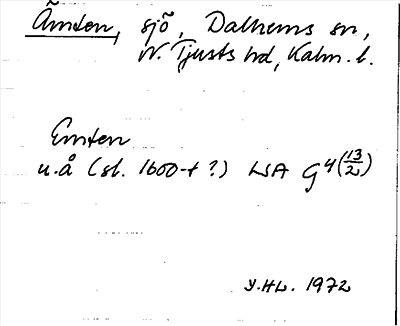 Ämten, sjö, Dalhems sn,
N. Tjusts hd, Kalm. l.
Emten
u.å (sl. 1600-t ?) LSA G4 (13/2)
Y.HL. 1972